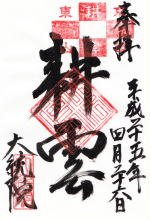 奉拝
平成二十五年
四月二十六日
耕雲
大統院